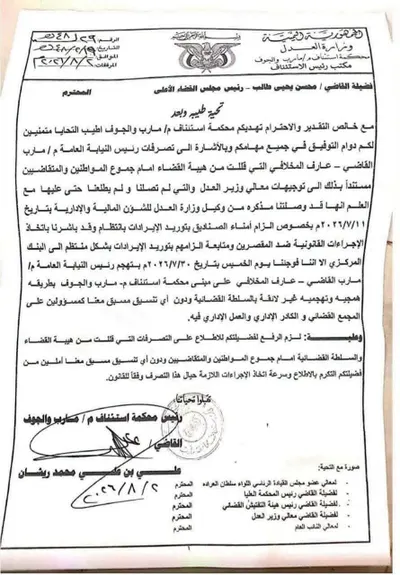 الجمهورية اليمنية
وزارة العدل
محكمة استئناف م/ مارب والجوف
مكتب رئيس الاستئناف
الرقم
التاريخ
الموافق
المرفقات
فضيلة القاضي/ محسن يحيى طالب - رئيس مجلس القضاء الأعلى المحترم
تحية طيبه وبعد
مع خالص التقدير والاحترام تهديكم محكمة استئناف م/ مارب والجوف اطيب التحايا متمنيين
لكم دوام التوفيق في جميع مهامكم وبالأشارة الى تصرفات رئيس النيابة العامة م/ مارب
القاضي - عارف المخلافي التي قللت من هيبة القضاء امام جموع المواطنين والمتقاضيين
مستنداً بذلك الى توجيهات معالي وزير العدل والتي لم تصلنا و لم يطلعنا حتى عليها مع
العلم انها قد وصلتنا مذكره من وكيل وزارة العدل للشؤون المالية والإدارية بتاريخ
٢٠٢٦/٧/١١م بخصوص الزام أمناء الصناديق بتوريد الإيرادات بانتظام وقد باشرنا باتخاذ
الإجراءات القانونية ضد المقصرين ومتابعة الزامهم بتوريد الإيرادات بشكل منتظم الى البنك
المركزي الا اننا فوجئنا يوم الخميس بتاريخ ٢٠٢٦/٧/٣٠م بتهجم رئيس النيابة العامة م/
مارب القاضي - عارف المخلافي على مبنى محكمة استئناف م- مارب والجوف بطريقه
همجيه وتهجميه غير لائقة بالسلطة القضائية ودون أي تنسيق مسبق معنا كمسؤولين على
المجمع القضائي و الكادر الإداري والعمل الإداري فيه.
وعليــة: لزم الرفع لفضيلتكم للاطلاع على التصرفات التي قللت من هيبة القضاء
والسلطة القضائية امام جموع المواطنين والمتقاضيين ودون أي تنسيق مسبق معنا آملين من
فضيلتكم التكرم بالاطلاع وسرعة اتخاذ الإجراءات اللازمة حيال هذا التصرف وفقاً للقانون.
تقبلوا تحياتنا،
رئيس محكمة استئناف م/ مارب والجوف
القاضي/
علي بن علي محمد ريشان
٢٠٢٦/٨/٢
صورة مع التحية:
لمعالي عضو مجلس القيادة الرئاسي اللواء سلطان العراده المحترم
لفضيلة القاضي رئيس المحكمة العليا المحترم
لفضيلة القاضي رئيس هيئة التفتيش القضائي المحترم
لفضيلة القاضي معالي وزير العدل المحترم
لمعالي النائب العام المحترم